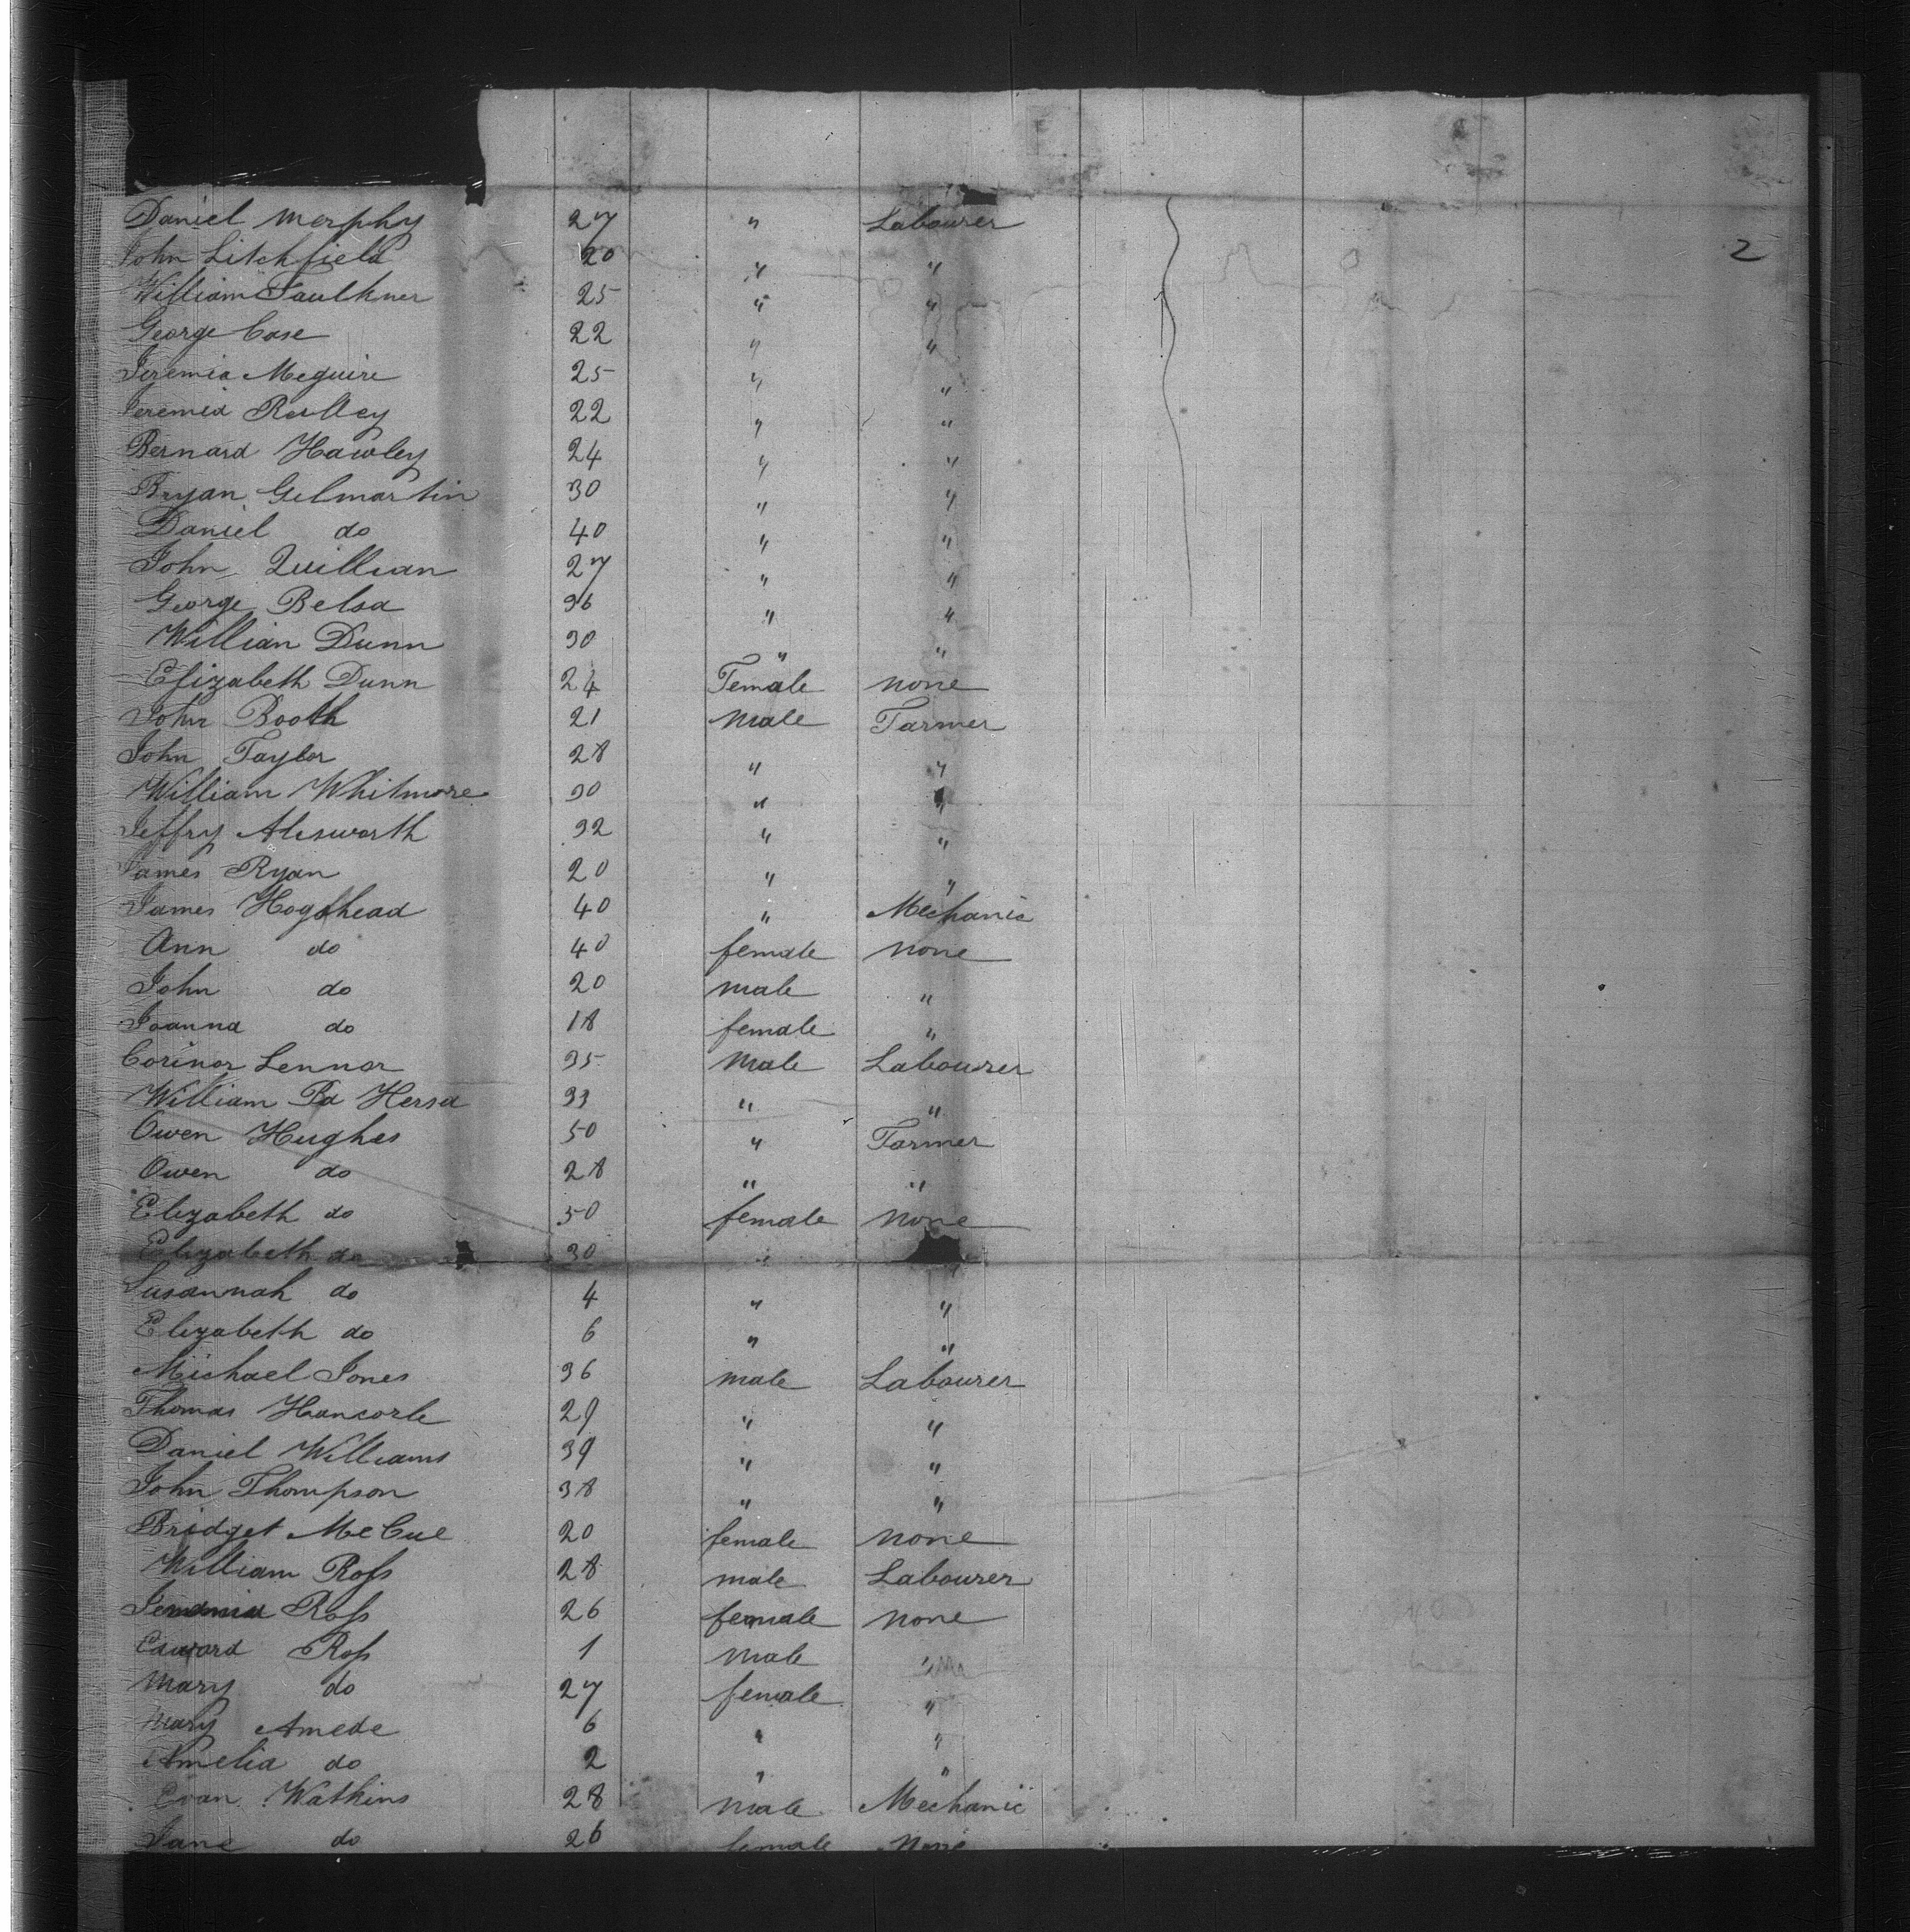 2
Daniel Morphy 27 " Labourer
John Litchfield 20 " "
William Faulkner 25 " "
George Case 22 " "
Jeremia Meguire 25 " "
Jeremia Reilley 22 " "
Bernard Hawley 24 " "
Bryan Gilmartin 30 " "
Daniel do 40 " "
John Quillian 27 " "
George Belsa 36 " "
Willian Dunn 30 " "
Elizabeth Dunn 24 Female none
John Booth 21 male Farmer
John Taylor 28 " "
William Whitmore 30 " "
Jeffry Alesworth 32 " "
James Ryan 20 " "
James Hogshead 40 " Mechanic
Ann do 40 female none
John do 20 male "
Joanna do 18 female "
Corinor Lennor 35 male Labourer
William Hersd 33 " "
Owen Hughes 50 " Farmer
Owen do 28 " "
Elizabeth do 50 female none
Elizabeth do 30 "
Susannah do 4 " "
Elizabeth do 6 " "
Michael Jones 36 male Labourer
Thomas Hancorle 29 " "
Daniel Williams 39 " "
John Thompson 38 " "
Bridget McCue 20 female none
William Ross 28 male Labourer
Ross 26 female none
Edward Ross 1 male "
Mary do 27 female "
Mary Amede 6 " "
Amelia do 2 " "
Evan Watkins 28 male Mechanic
Jane do 26 female none